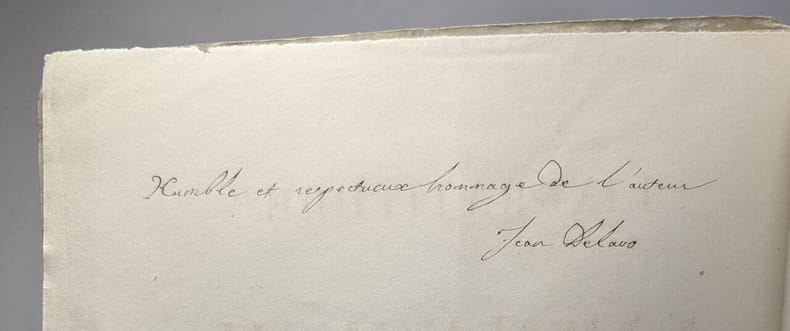 Humble et respectueux hommage de l'auteur
Jean Delavo